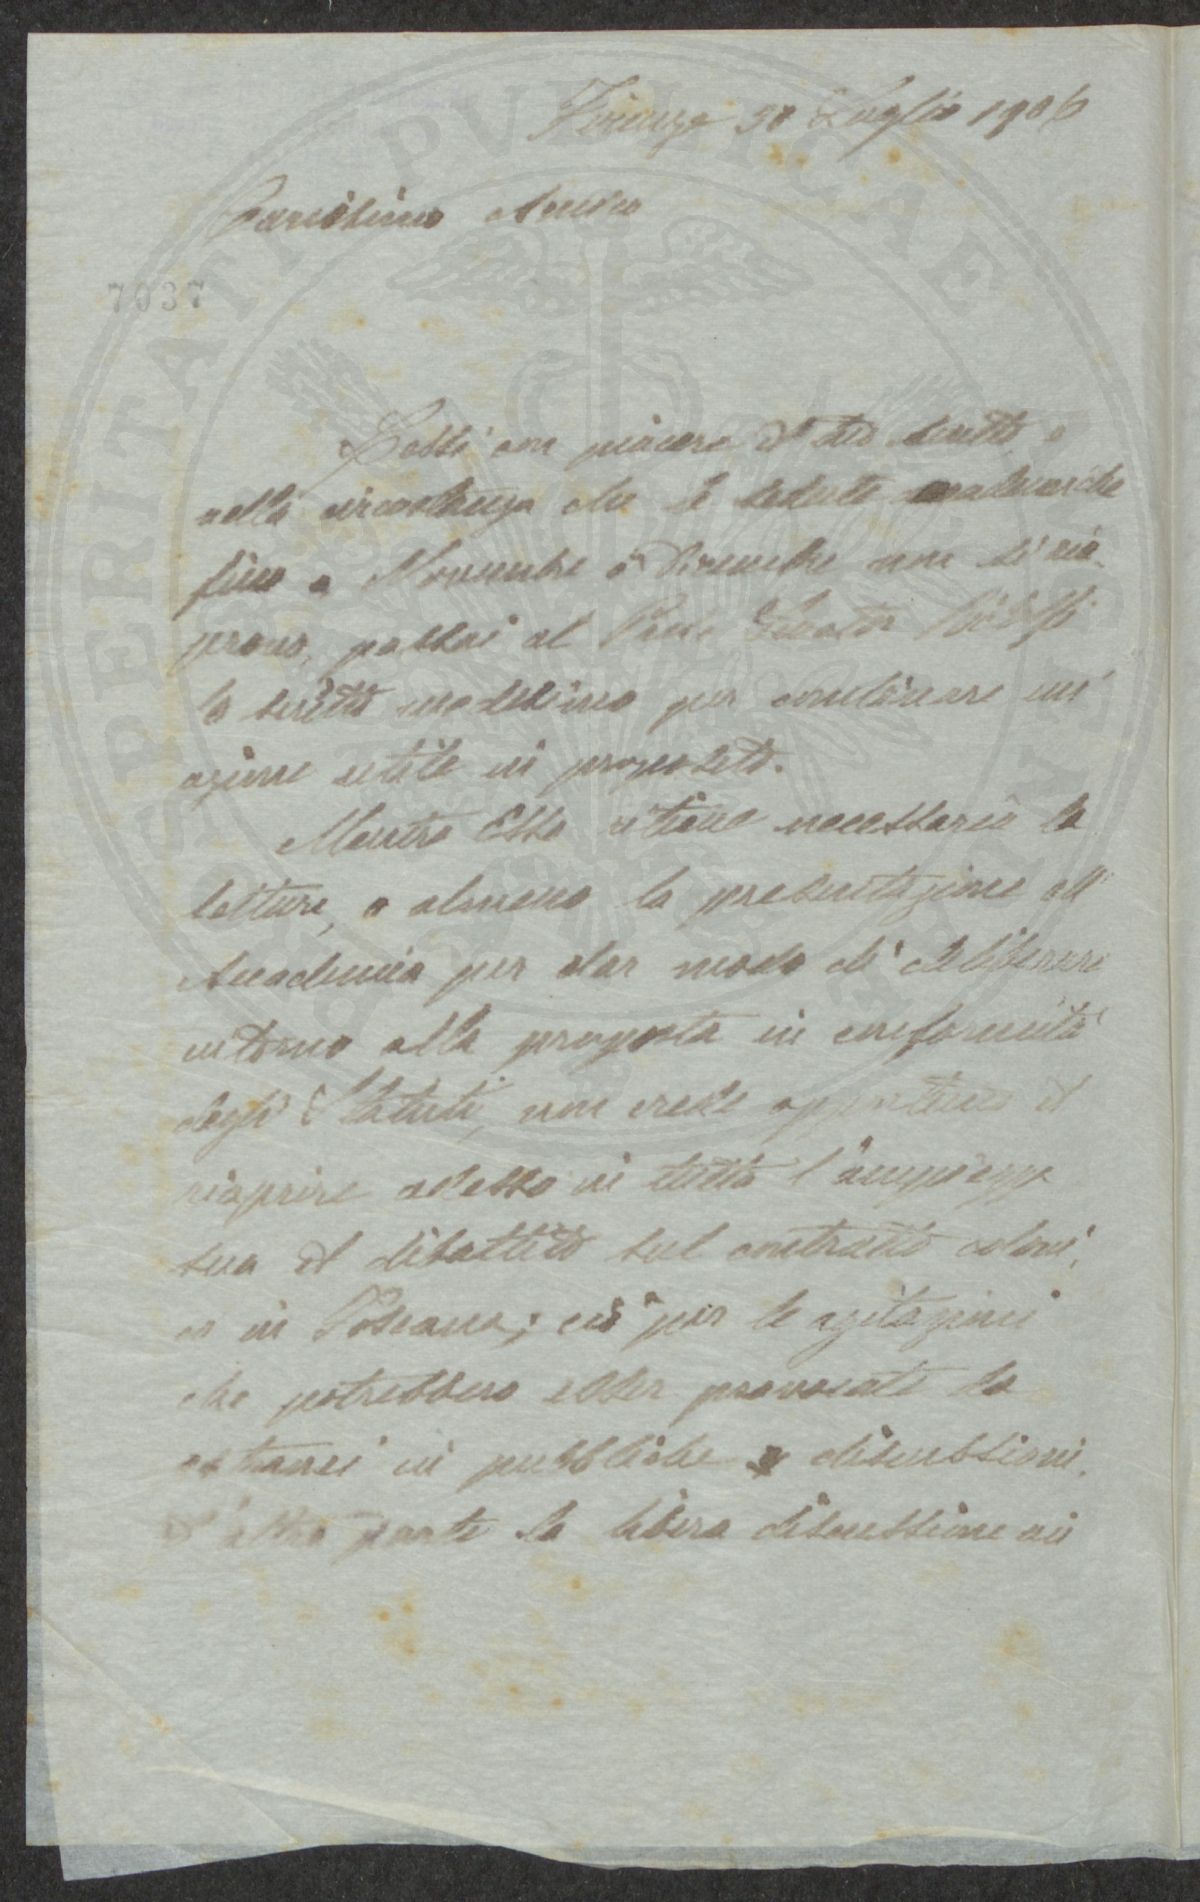 Firenze 30 Luglio 1906
Carissimo Amico
7037
Lessi con piacere il tuo scritto e
nella circostanza che le sedute accademiche
fino a Novembre o Dicembre non si ria-
prono, passai al Senator Ridolfi
lo scritto medesimo per continuare un'
azione utile in proposito.
Mentre Esso ritiene necessaria la
lettura, o almeno la presentazione all'
Accademia per dar modo di deliberare
intorno alla proposta in conformità
degli Statuti, non crede opportuno il
riaprire adesso in tutta l'ampiezza
sua il dibattito sul contratto coloni,
co in Toscana; ciò per le agitazioni
che potrebbero esser provocate da
estranei in pubbliche discussioni.
D'altra parte la libera discussione in
PERITATI PVBLICAE